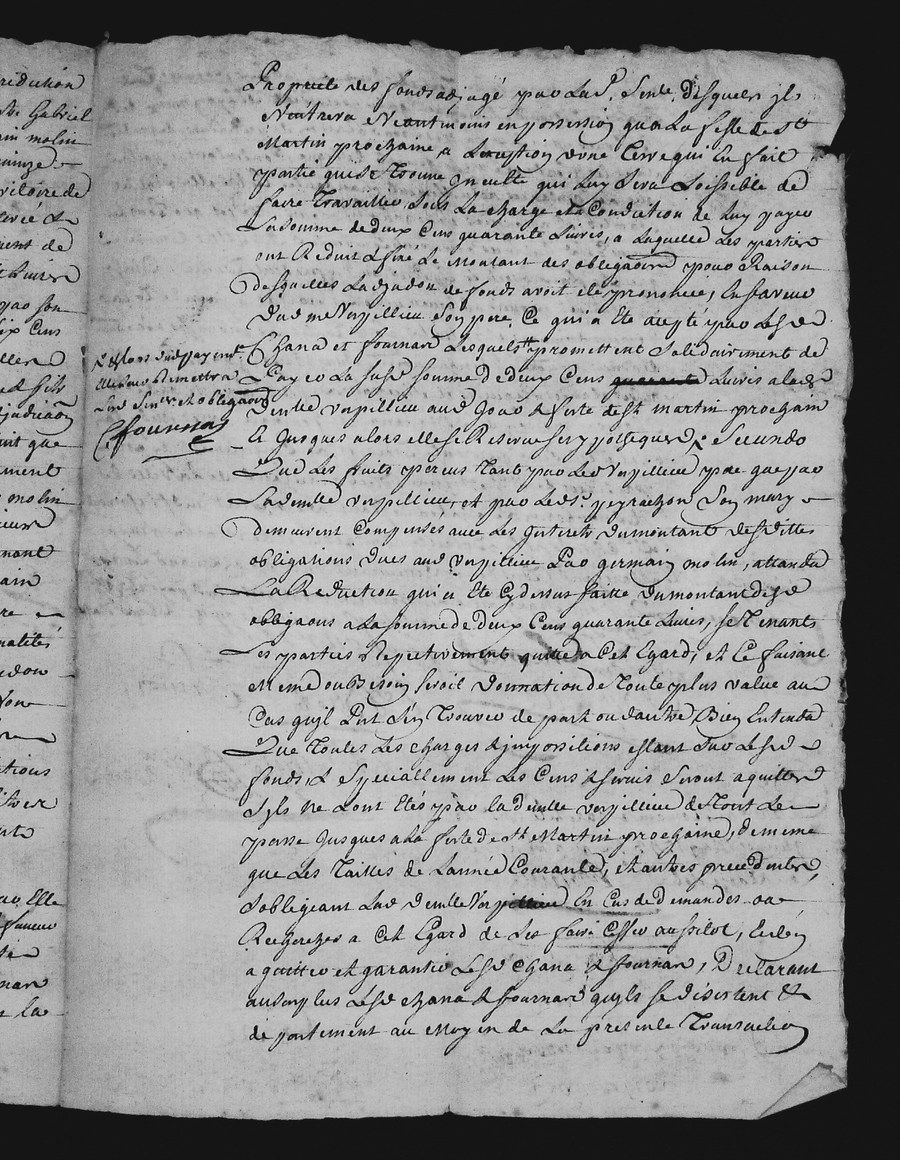 Propriete des fonds adjugé par lad. Sente. Desquels ils
N'entrera Neantmoins en possession qua La feste de St
Martin prochaine a Lexeption dune terre qui En fait
partie qui se Trouve Inculte qui Luy Sera Loissible de
faire Travailler, Sous La charge et la Condiction de Luy payer
La somme de deux Cens quarante Livres, a Laquelle Les parties
ont Reduit & fixé Le Montant des obligaons pour Raison
Desquelles Ladjudon de fonds avoit ete prononcée, En faveur
Dud me Verpillieu Son pere, Ce qui a Ete acepté par Lesd
Chana et fournar Lesquels promettent Solidairement de
Payer La susd somme de deux Cens quarante Livres alad
Demlle verpillieu aud Jour & feste de St martin prochain
Et Jusques alors elle se Reserve Ses ypotheques, Secundo
Que Les fruits percus Tant par Led Verpillieu pere que par
Lademlle verpillieu, et par Led Sr. peyrachon Son mary
demeurent Compensés avec Les Interets Dumontant desdittes
obligations dues aud Verpillieu Par germain molin, attandu
La Reduction qui a Ete Cydessus faitte Dumontant desd
obligaons a La somme de deux Cens quarante Livres, se Tenants
Les parties Respectivement quittes a Cet Egard, et Ce faisant
Meme dou Besoin seroit Donnation de Toute plus value au
Cas quil Put s'en Trouver de part ou dautre, Bien Entendu
Que Toutes Les charges & impositions estant Sur Lesd
fonds, & Speciallement Les Cens & servis Seront aquittes
Sils Ne Lont Etés par lad Demlle verpillieu de Tout Le
passe Jusques a La feste de St Martin prochaine, de meme
que Les Tailles de Lannée Courante, et autres precedentes,
Sobligeant Lad Demlle Verpillieu En Cas de Demandes ou
Recherches a Cet Egard de Les faire Cesser aussitot, Et den
aquitter et garantir Lesd Chana & fournar, Declarant
au surplus Lesd chana & fournar quils se desistent &
departement au Moyen de La presente Transaction
& Lors dud payemt.
elle leur Remettra
Lesd Sence et obligaons
fournas
ridiction
Gabriel
molin
quinze
vitoire de
ment de
Livres
par son
Cens
& fils
adjudicaon
que
ment
molin
nant
main
malités
ctions
Elle
faveur
nar
la